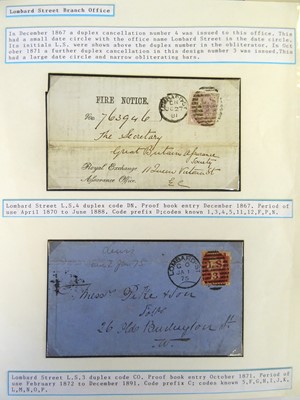 Lombard Street Branch Office
In December 1867 a duplex cancellation number 4 was issued to this office. This
had a small date circle with the office name Lombard Street in the date circle.
Its initials L.S. were shown above the duplex number in the obliterator. In Oct
ober 1871 a further duplex cancellation in this design number 3 was issued. This has
a large date circle and narrow obliterating bars.
FIRE NOTICE.
No. 7639446
The Secretary
Great Britain Assurance
Society
Royal Exchange
Assurance Office
Queen Victoria St
E.C
Lombard Street L.S.4 duplex code DN. Proof book entry December 1867. Period of
use April 1870 to June 1888. Code prefix D; codes known 1,3,4,5,11,12,F,P,N.
LOMBARD
Messrs Pike and Son
26 Old Burlington St
W.
Lombard Street L.S.3 duplex code CO. Proof book entry October 1871. Period of
use February 1872 to December 1891. Code prefix C; codes known 3,F,G,H,I,J,K,
L,M,N,O,P.